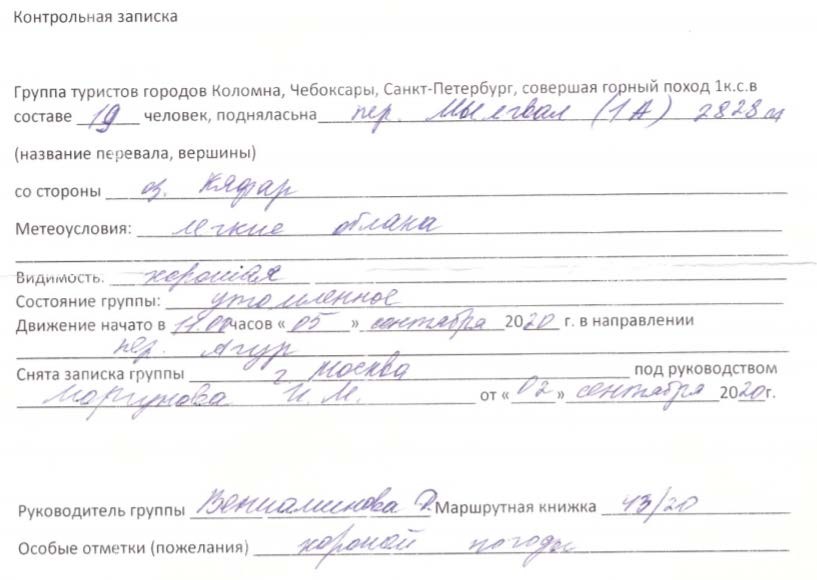 Контрольная записка
Группа туристов городов Коломна, Чебоксары, Санкт-Петербург, совершая горный поход 1к.с.в
составе 19 человек, поднялась на пер. Мылгвал (1А) 2828 м
(название перевала, вершины)
со стороны оз. Кяфар
Метеоусловия: легкие облака
Видимость: хорошая
Состояние группы: утомленное
Движение начато в 11.00 часов «05» сентября 2020 г. в направлении
пер. Агур
Снята записка группы г Москва под руководством
Моргунова И. М. от «02» сентября 2020г.
Руководитель группы Вениаминова Маршрутная книжка 43/20
Особые отметки (пожелания) хорошей погоды